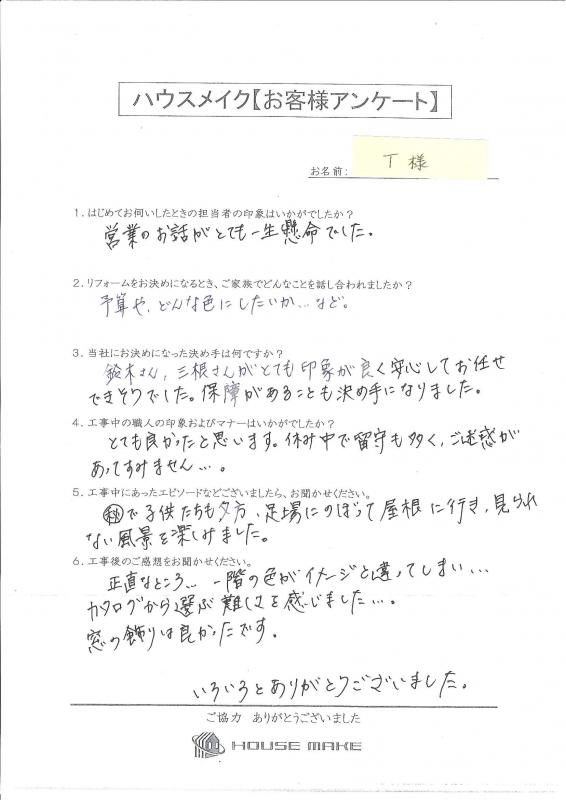 ハウスメイク【お客様アンケート】
お名前: T 様
1. はじめてお伺いしたときの担当者の印象はいかがでしたか？
営業のお話がとても一生懸命でした。
2. リフォームをお決めになるとき、ご家族でどんなことを話し合われましたか？
予算や、どんな色にしたいか…など。
3. 当社にお決めになった決め手は何ですか？
鈴木さん、三根さんがとても印象が良く安心してお任せ
できそうでした。保障があることも決め手になりました。
4. 工事中の職人の印象およびマナーはいかがでしたか？
とても良かったと思います。休み中で留守も多く、ご迷惑が
あってすみません…。
5. 工事中にあったエピソードなどございましたら、お聞かせください。
㊙で子供たちも夕方、足場にのぼって屋根に行き、見られ
ない風景を楽しみました。
6. 工事後のご感想をお聞かせください。
正直なところ… 一階の色がイメージと違ってしまい…
カタログから選ぶ難しさを感じました…。
窓の飾りは良かったです。
いろいろとありがとうございました。
ご協力 ありがとうございました
HOUSE MAKE